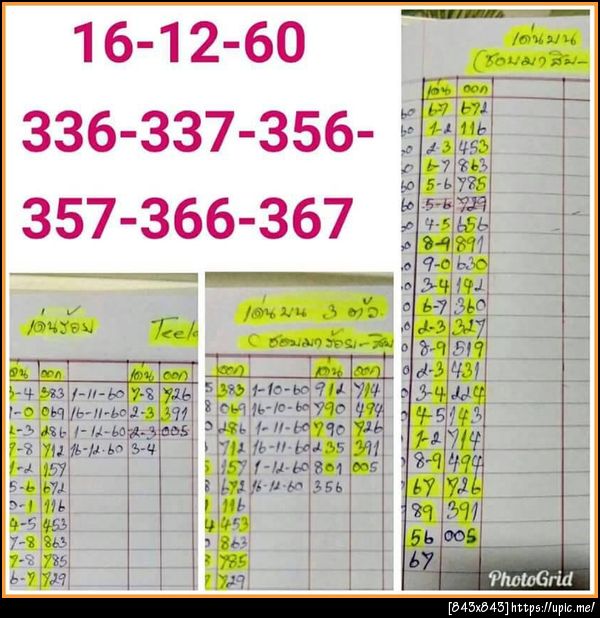 16-12-60
336-337-356-
357-366-367
เด่นบน
เด่น ออก
67 672
1-2 116
2-3 453
6-7 863
5-6 785
5-6 729
4-5 656
8-9 891
9-0 630
3-4 142
6-7 360
2-3 327
8-9 519
2-3 431
3-4 224
45 143
1-2 714
8-9 494
67 726
89 391
56 005
67
เด่นร้อย
เด่น ออก
383 1-11-60 7-8 726
069 16-11-60 2-3 391
286 1-12-60 2-3 005
7-8 712 16-12-60 3-4
157
5-6 672
116
4-5 453
7-8 863
7-8 785
6-7 729
เด่นบน 3 ตัว
ออก เด่น ออก
383 1-10-60 912 714
069 16-10-60 790 494
286 1-11-60 790 726
712 16-11-60 235 391
157 1-12-60 801 005
672 16-12-60 356
116
453
863
785
729
PhotoGrid
[843x843]https://upic.me/